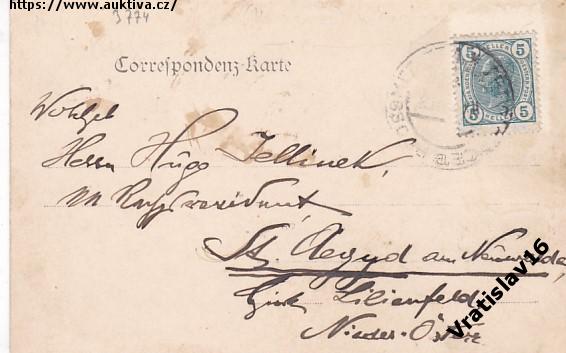 https://www.auktiva.cz/
3774
Correspondenz-Karte
5 5
HELLER
5 HELLER 5
Wohlgeb
Herrn Hugo Jellinek,
St. Aegyd am Neuwalde,
Lilienfeld
Nieder-Östrr
Vratislav16